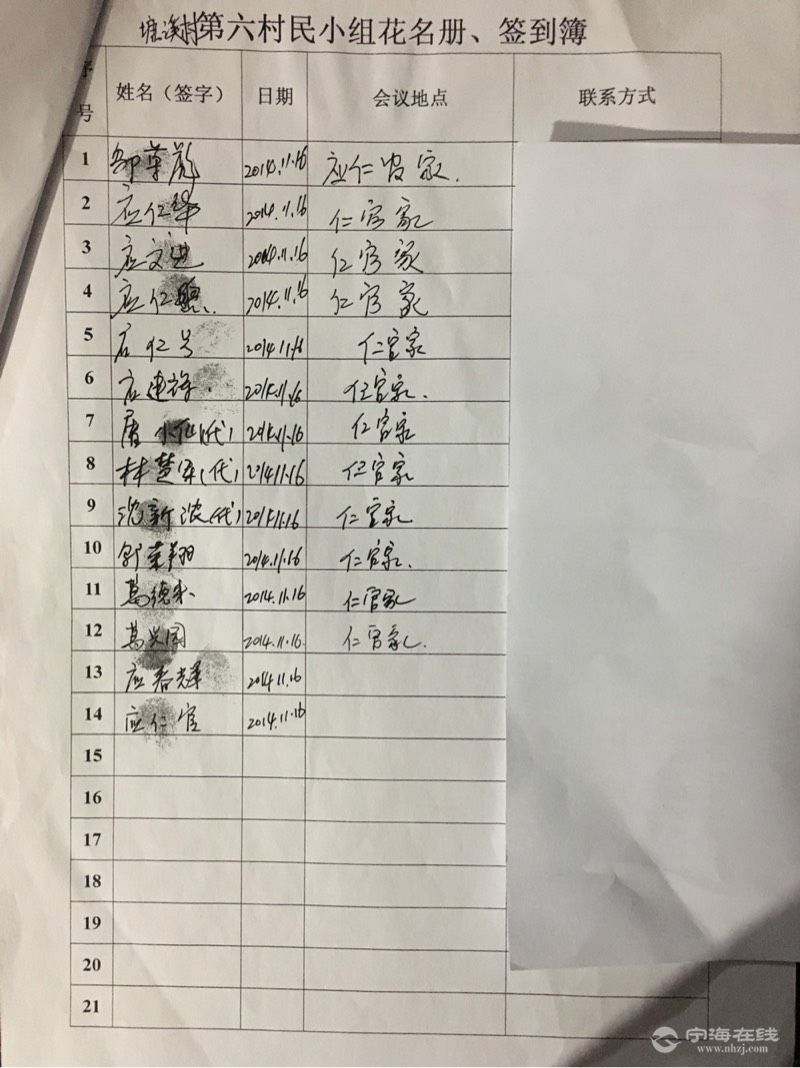 村第六村民小组花名册、签到簿
序号 姓名（签字） 日期 会议地点 联系方式
1 2014.11.16 应仁官家.
2 应仁华 2014.11.16 仁官家
3 应文进 2014.11.16 仁官家
4 应仁 2014.11.16 仁官家
5 应仁号 2014.11.16 仁官家
6 应建 2014.11.16 仁官家.
7 小仙(代) 2014.11.16 仁官家
8 林楚军(代) 2014.11.16 仁官家
9 沈新法(代) 2014.11.16 仁官家
10 邬荣翔 2014.11.16 仁官家.
11 葛德 2014.11.16 仁官家
12 葛兴国 2014.11.16. 仁官家.
13 应春辉 2014.11.16
14 应仁官 2014.11.16
15
16
17
18
19
20
21
宁海在线
www.nhzj.com